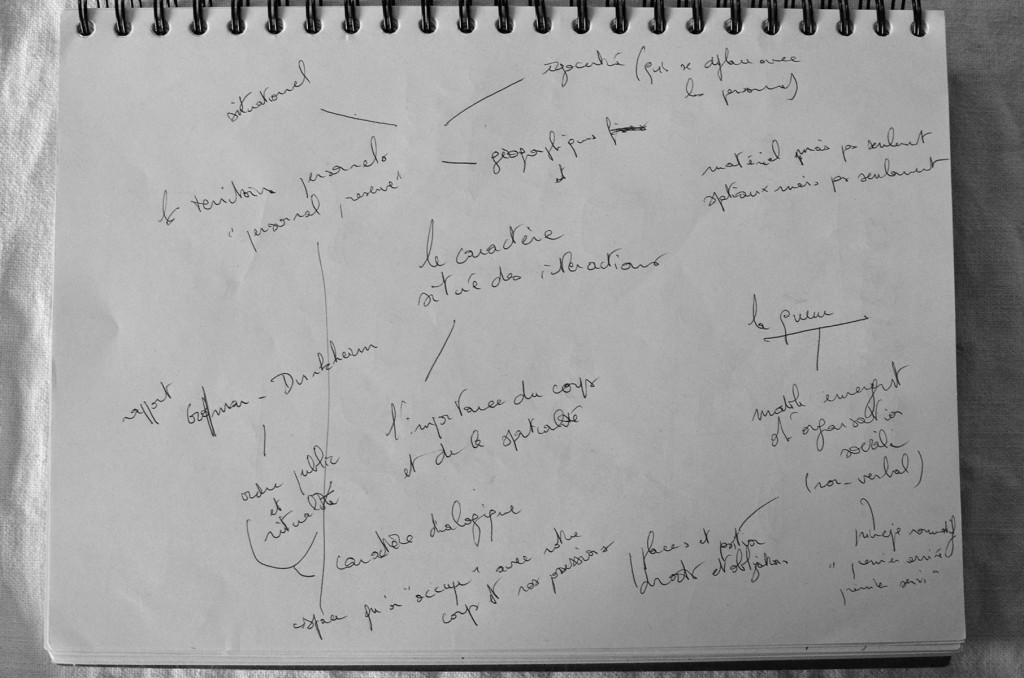 situationnel
égocentré (qui se déplace avec
la personne)
géographiques
et
le territoire personnels
"personal preserve"
matériel mais pas seulement
spatiaux mais pas seulement
le caractère
situé des interactions
la queue
rapport Goffman - Durkheim
l'importance du corps
et de la spatialité
modèle émergent
d'organisation
sociale
(non-verbal)
ordre public
et
ritualité
caractère dialogique
espace qu'on "occupe" avec notre
corps et nos possessions
places et position
droits et obligations
principe normatif
"premier arrivé
premier servi"